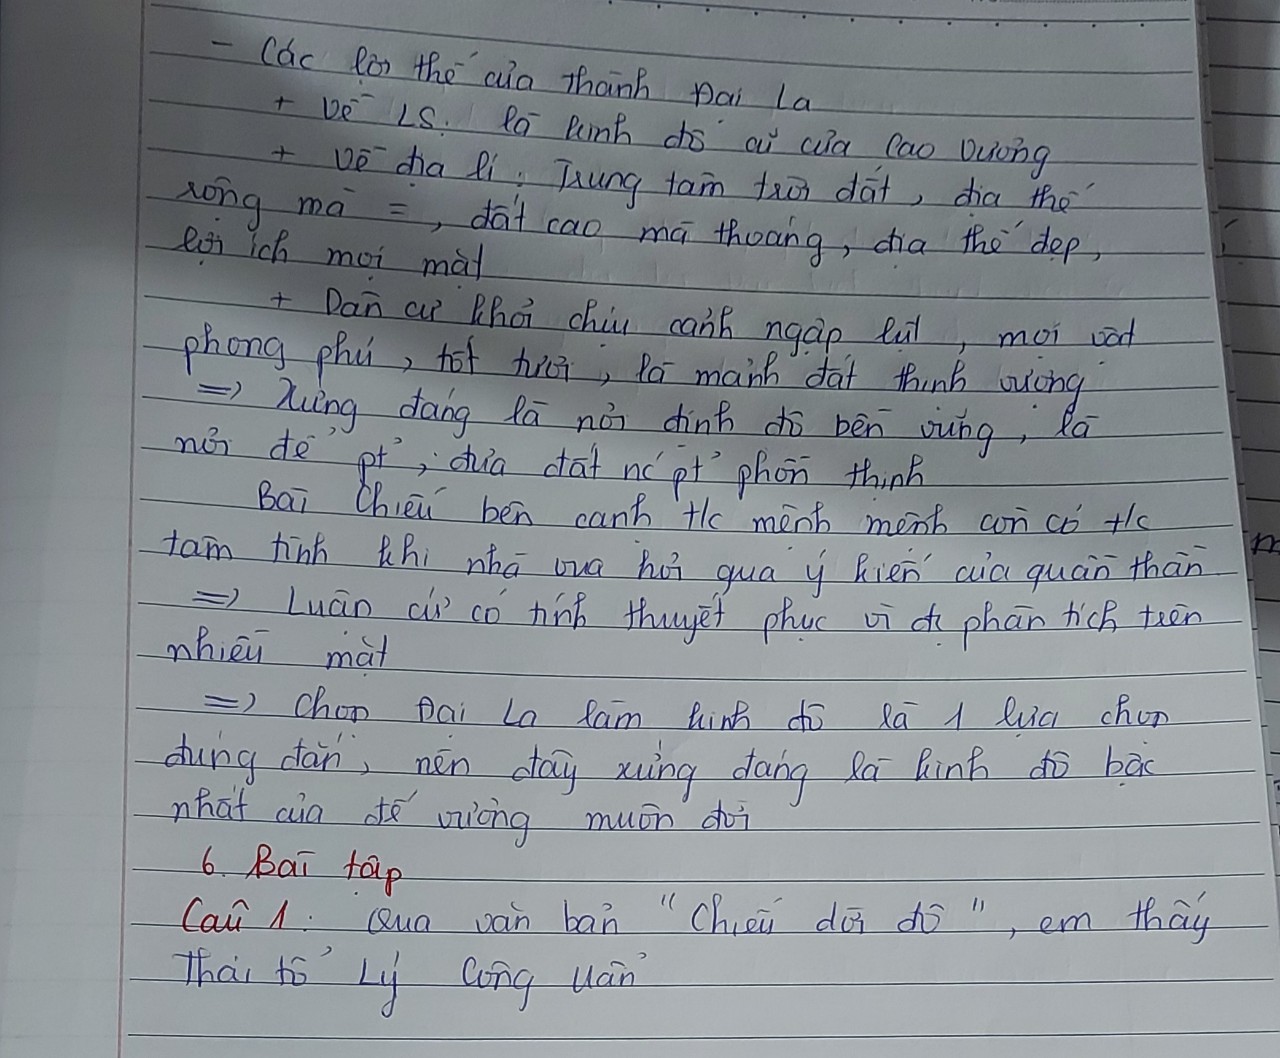 - Các lợi thế của thành Đại La
+ Về LS: là kinh đô cũ của Cao Vương
+ Về địa lí: Trung tâm trời đất, địa thế
rộng mà =, đất cao mà thoáng, địa thế đẹp,
lợi ích mọi mặt
+ Dân cư khỏi chịu cảnh ngập lụt, mọi vật
phong phú, tốt tươi, là mảnh đất thịnh vượng
=> Xứng đáng là nơi định đô bền vững, là
nơi để pt', đưa đất nc' pt' phồn thịnh
Bài Chiếu bên cạnh t/c mệnh mệnh còn có t/c
tâm tình khi nhà vua hỏi qua ý kiến của quần thần
=> Luận cứ có tính thuyết phục vì đc phân tích trên
nhiều mặt
=> Chọn Đại La làm kinh đô là 1 lựa chọn
đúng đắn, nên đây xứng đáng là kinh đô bậc
nhất của đế vương muôn đời
6. Bài tập
Câu 1: Qua văn bản "Chiếu dời đô", em thấy
Thái tổ Lý Công Uẩn